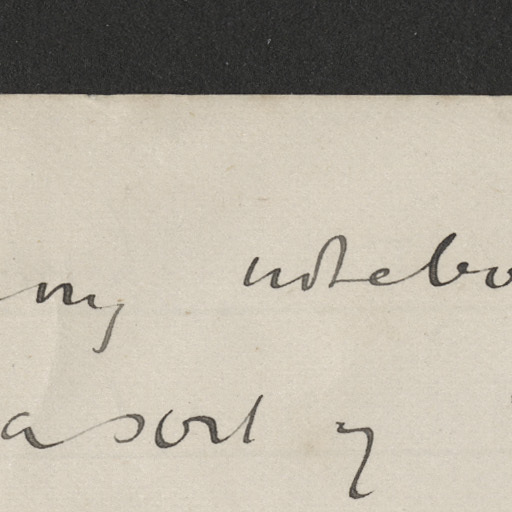 my notebo
a sort of